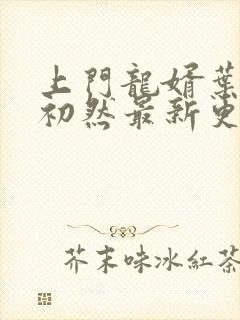 上門龍婿葉
初然最新更
芥末味冰紅茶